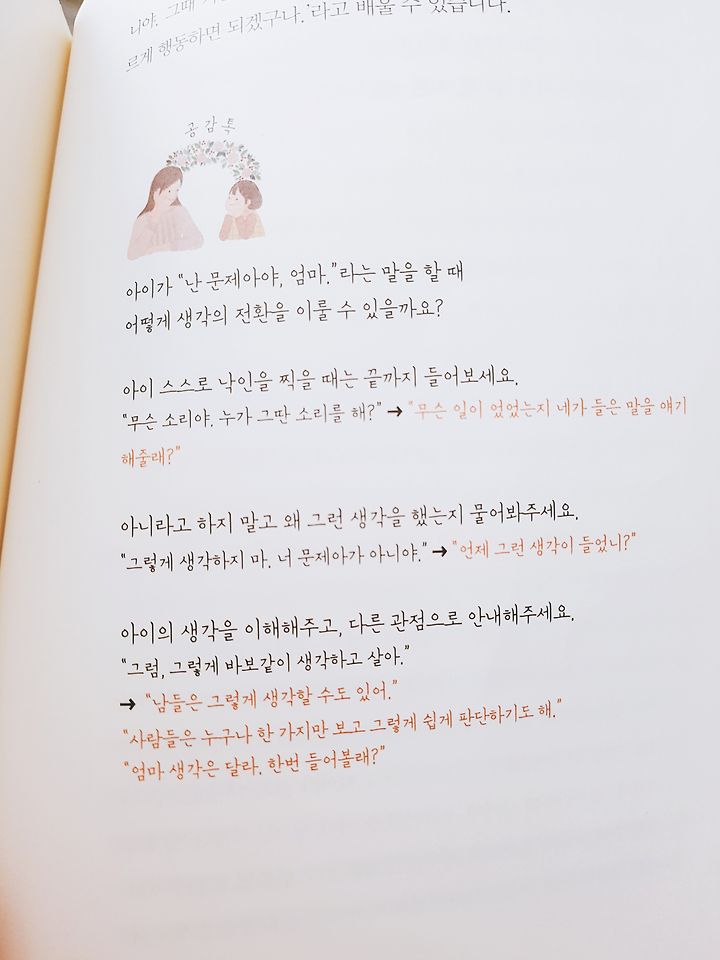 니야. 그때
르게 행동하면 되겠구나.'라고 배울 수 있습니다.
공감톡
아이가 "난 문제아야, 엄마."라는 말을 할 때
어떻게 생각의 전환을 이룰 수 있을까요?
아이 스스로 낙인을 찍을 때는 끝까지 들어보세요.
"무슨 소리야. 누가 그딴 소리를 해?" → "무슨 일이 있었는지 네가 들은 말을 얘기
해줄래?"
아니라고 하지 말고 왜 그런 생각을 했는지 물어봐주세요.
"그렇게 생각하지 마. 너 문제아가 아니야." → "언제 그런 생각이 들었니?"
아이의 생각을 이해해주고, 다른 관점으로 안내해주세요.
"그럼, 그렇게 바보같이 생각하고 살아."
→ "남들은 그렇게 생각할 수도 있어."
"사람들은 누구나 한 가지만 보고 그렇게 쉽게 판단하기도 해."
"엄마 생각은 달라. 한번 들어볼래?"